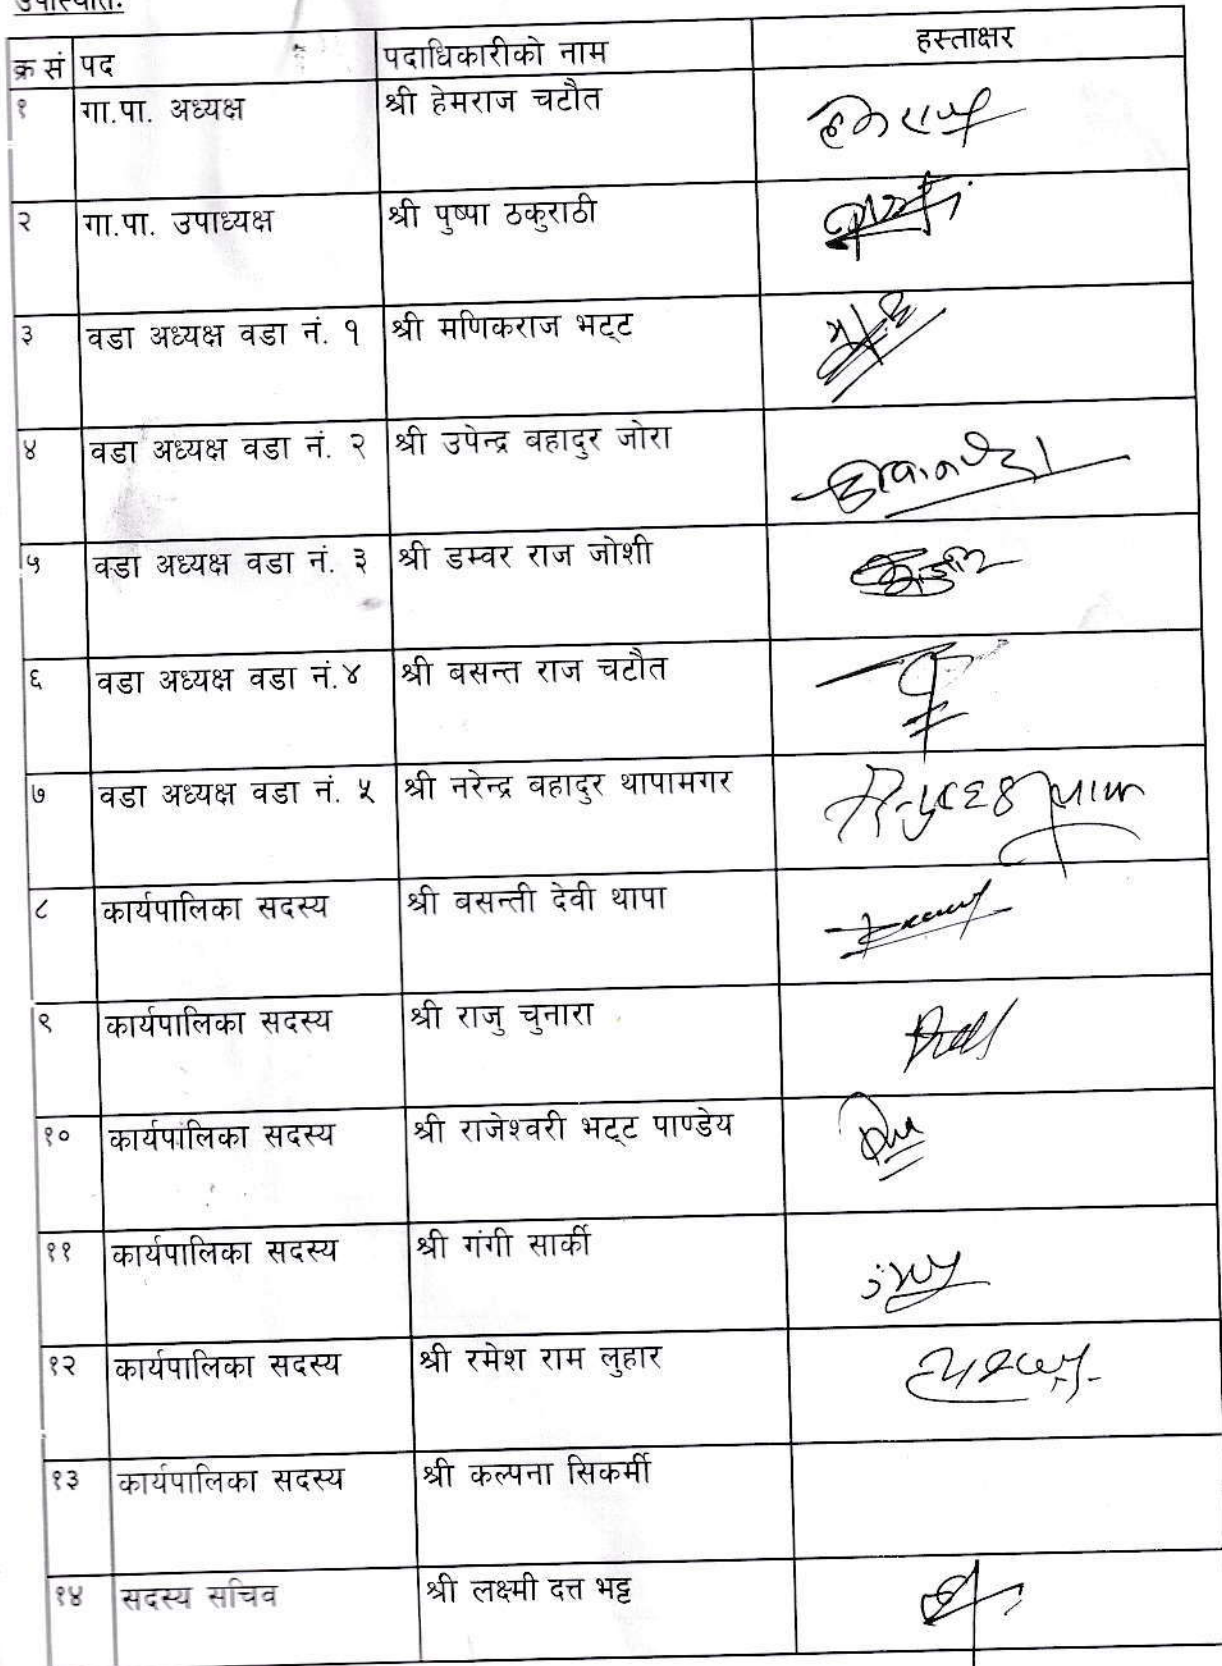 उपस्थितिः
क्र सं पद पदाधिकारीको नाम हस्ताक्षर
१ गा.पा. अध्यक्ष श्री हेमराज चटौत
२ गा.पा. उपाध्यक्ष श्री पुष्पा ठकुराठी
३ वडा अध्यक्ष वडा नं. १ श्री मणिकराज भट्ट
४ वडा अध्यक्ष वडा नं. २ श्री उपेन्द्र बहादुर जोरा
५ वडा अध्यक्ष वडा नं. ३ श्री डम्वर राज जोशी
६ वडा अध्यक्ष वडा नं.४ श्री बसन्त राज चटौत
७ वडा अध्यक्ष वडा नं. ५ श्री नरेन्द्र बहादुर थापामगर
८ कार्यपालिका सदस्य श्री बसन्ती देवी थापा
९ कार्यपालिका सदस्य श्री राजु चुनारा
१० कार्यपालिका सदस्य श्री राजेश्वरी भट्ट पाण्डेय
११ कार्यपालिका सदस्य श्री गंगी सार्की
१२ कार्यपालिका सदस्य श्री रमेश राम लुहार
१३ कार्यपालिका सदस्य श्री कल्पना सिकर्मी
१४ सदस्य सचिव श्री लक्ष्मी दत्त भट्ट